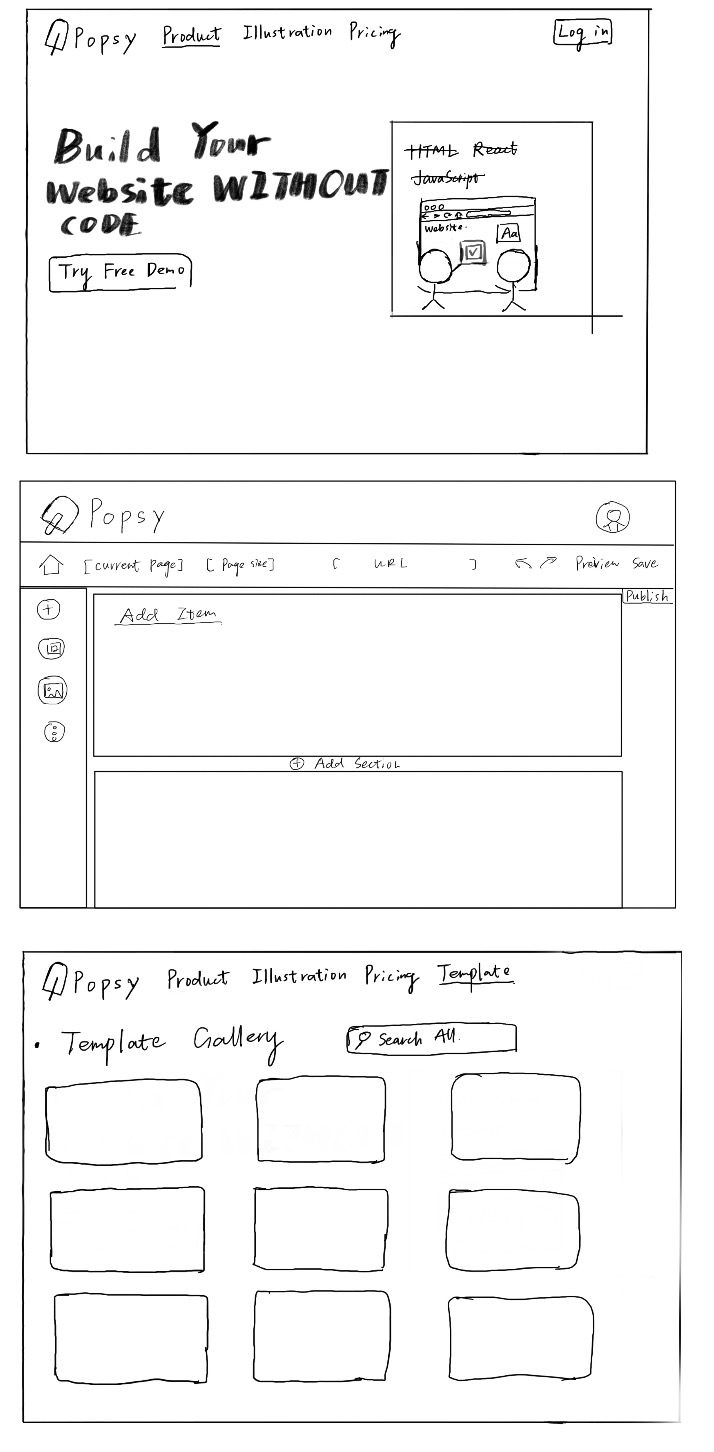 Popsy Product Illustration Pricing Log in
Build Your
Website WITHOUT
CODE
Try Free Demo
HTML React
JavaScript
Website.
Aa
Popsy
[current page] [Page size] [ URL ] Preview Save
Publish
Add Item
Add Section
Popsy Product Illustration Pricing Template
Template Gallery Search All.